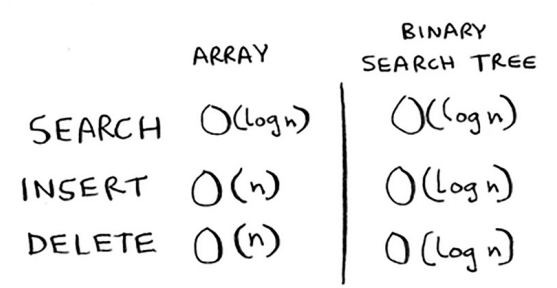 ARRAY BINARY SEARCH TREE
SEARCH O(log n) O(log n)
INSERT O(n) O(log n)
DELETE O(n) O(log n)